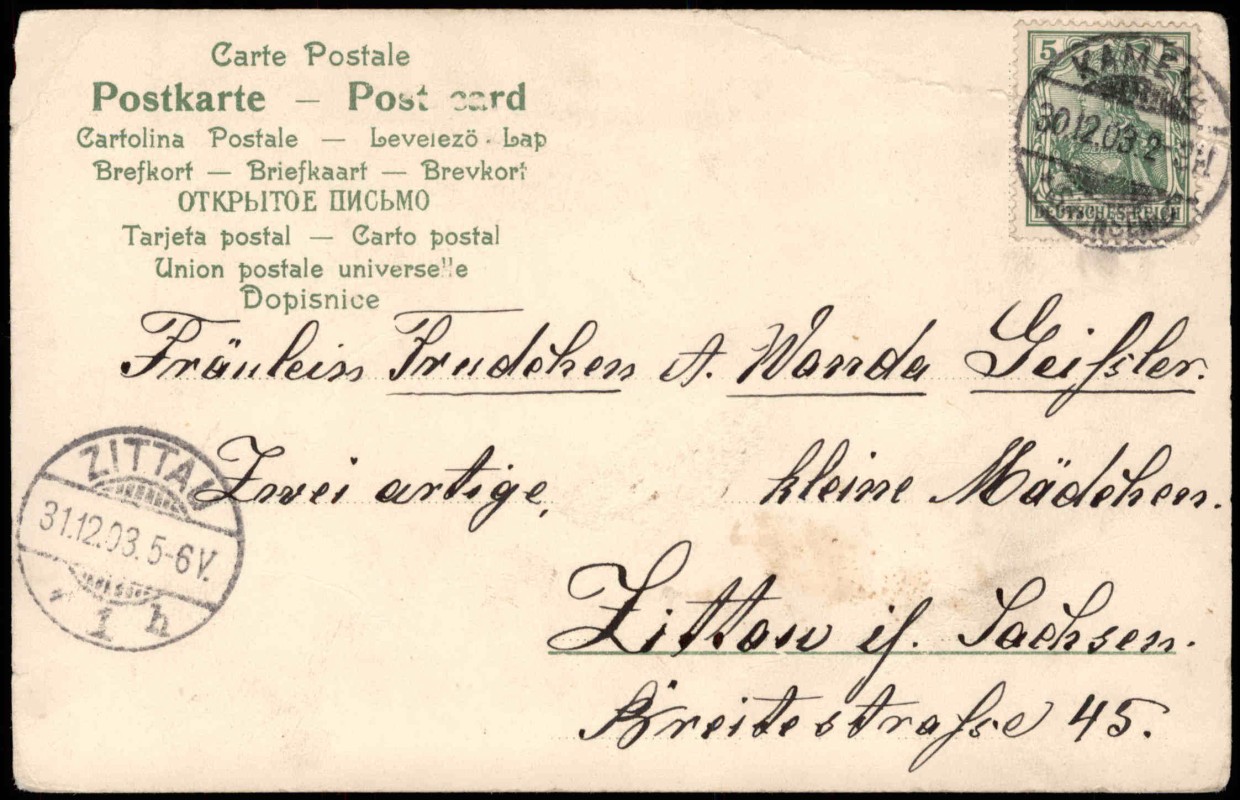 Carte Postale
Postkarte – Post card
Cartolina Postale – Levelező-Lap
Brefkort – Briefkaart – Brevkort
ОТКРЫТОЕ ПИСЬМО
Tarjeta postal – Carto postal
Union postale universelle
Dopisnice
5 5
KAMENZ
30.12.03. 2-
DEUTSCHES REICH
Fräulein Trudchen A. Wanda Geißler.
ZITTAU
31.12.03. 5-6V.
1 h
Zwei artige, kleine Mädchen.
Zittau i/. Sachsen.
Breitestraße 45.